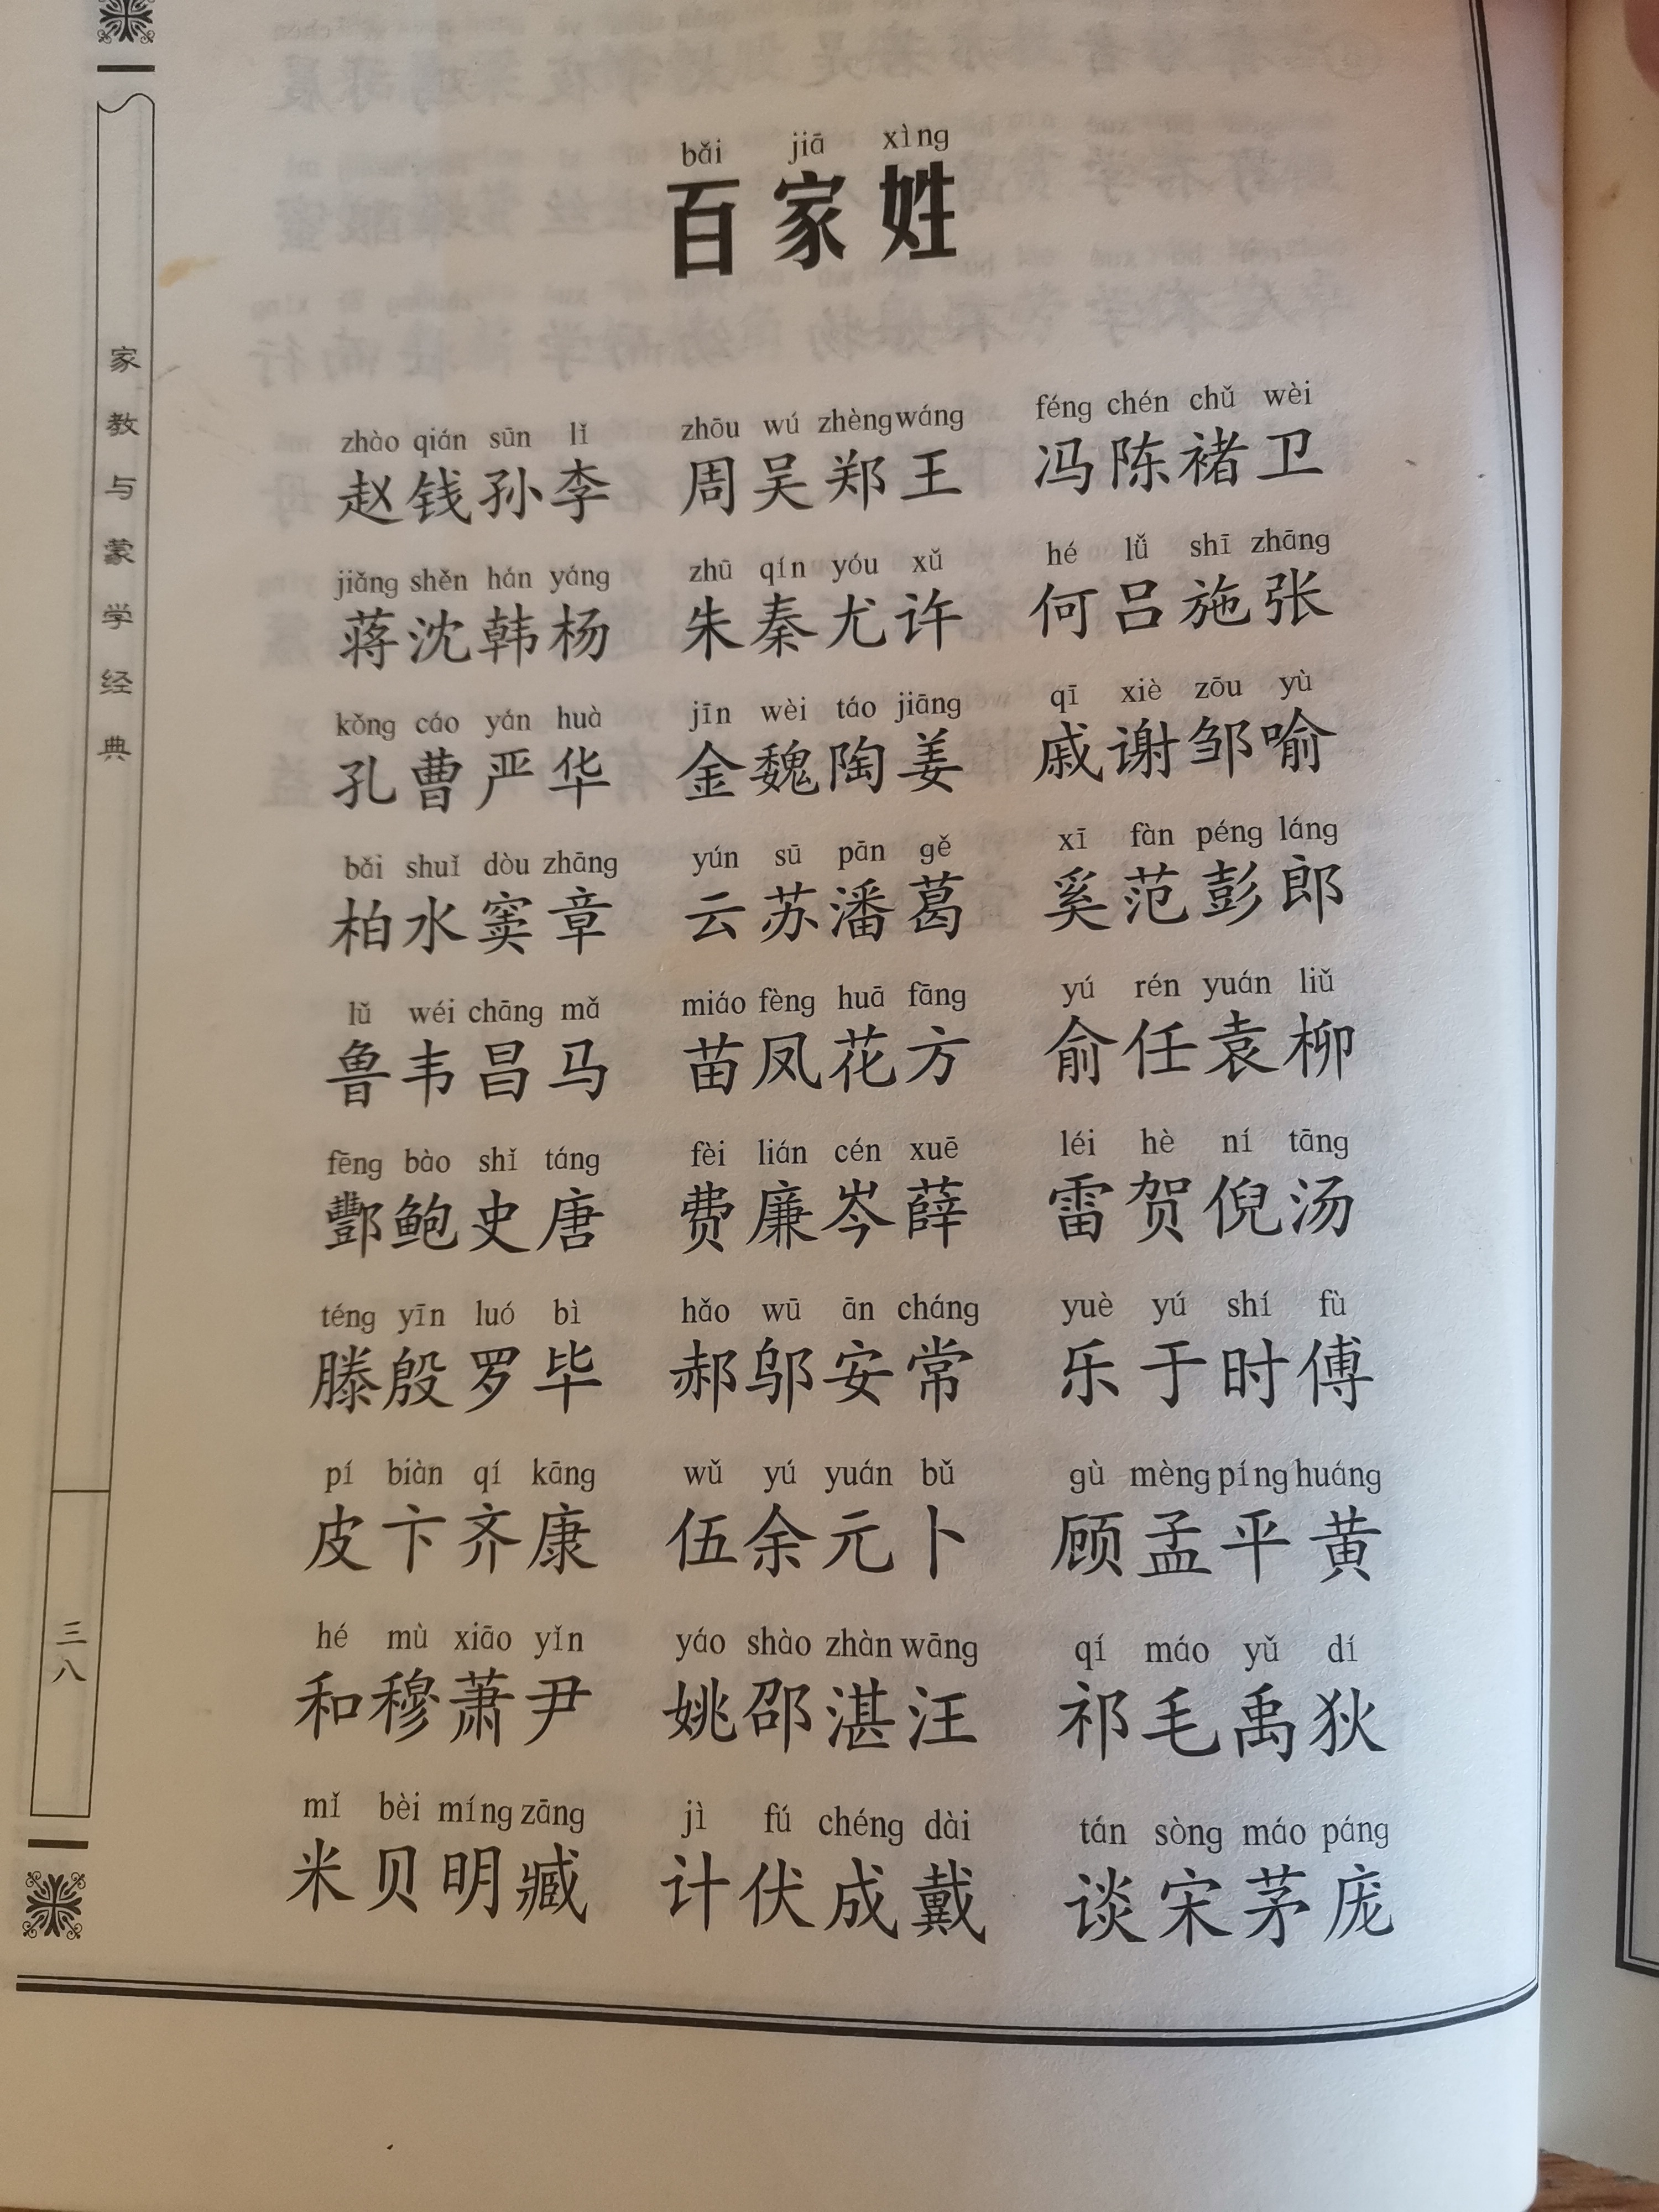 bǎi jiā xìng
百家姓
zhào qián sūn lǐ zhōu wú zhèng wáng féng chén chǔ wèi
赵钱孙李 周吴郑王 冯陈褚卫
jiǎng shěn hán yáng zhū qín yóu xǔ hé lǚ shī zhāng
蒋沈韩杨 朱秦尤许 何吕施张
kǒng cáo yán huà jīn wèi táo jiāng qī xiè zōu yù
孔曹严华 金魏陶姜 戚谢邹喻
bǎi shuǐ dòu zhāng yún sū pān gě xī fàn péng láng
柏水窦章 云苏潘葛 奚范彭郎
lǔ wéi chāng mǎ miáo fèng huā fāng yú rén yuán liǔ
鲁韦昌马 苗凤花方 俞任袁柳
fēng bào shǐ táng fèi lián cén xuē léi hè ní tāng
酆鲍史唐 费廉岑薛 雷贺倪汤
téng yīn luó bì hǎo wū ān cháng yuè yú shí fù
滕殷罗毕 郝邬安常 乐于时傅
pí biàn qí kāng wǔ yú yuán bǔ gù mèng píng huáng
皮卞齐康 伍余元卜 顾孟平黄
hé mù xiāo yǐn yáo shào zhàn wāng qí máo yǔ dí
和穆萧尹 姚邵湛汪 祁毛禹狄
mǐ bèi míng zāng jì fú chéng dài tán sòng máo páng
米贝明臧 计伏成戴 谈宋茅庞
家教与蒙学经典
三八